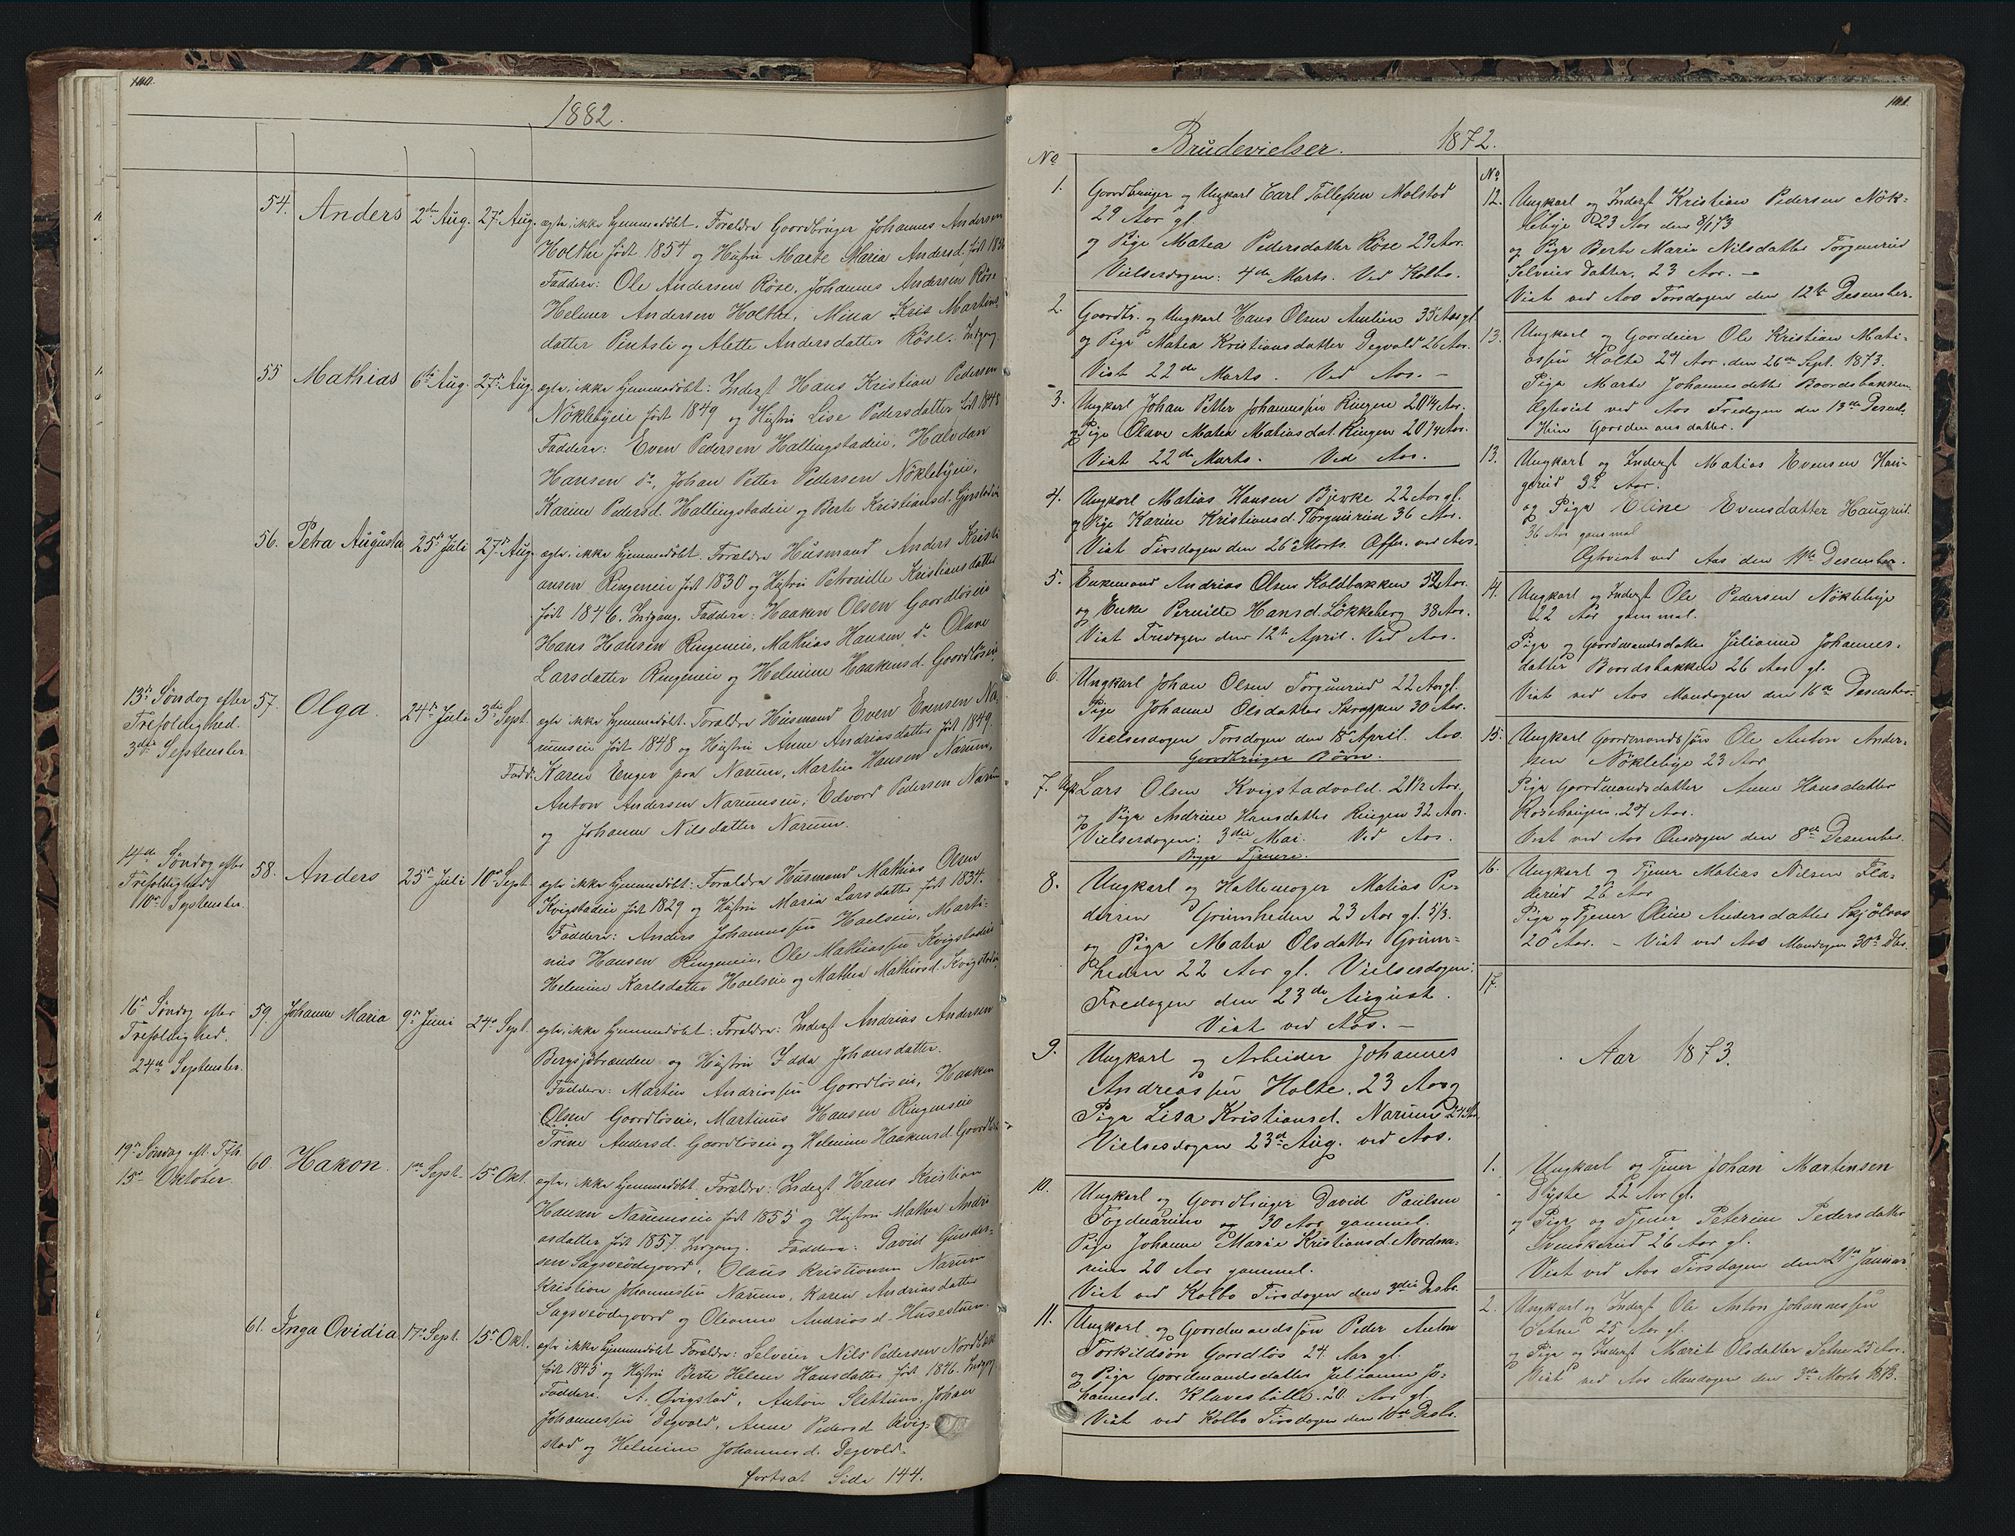 140.
1882.
54. Anders 2den Aug. 27de Aug. ægte, ikke hjemmedøbt. Foraldre Goordbruger Johannes Andersen
Holthe født 1854 og Hustru Marte Maria Andersd. født
Faddere: Ole Andersen Röse, Johannes Andersen Röse
Helmer Andersen Holthe, Mina Kris Martins
datter Pintsli og Alette Andersdatter Röse. Indgang
55 Mathias 6te Aug. 27de Aug. ægte, ikke hjemmedøbt: Inderst Hans Kristian Pedersen
Nöklebyeie født 1849 og Hustru Lise Pedersdatter født 1848
Faddere: Even Pedersen Hallingstadeie, Halvdan
Hansen do, Johan Petter Pedersen Nöklebyeie,
Karine Pedersd. Hallingstadeie og Berte Kristiansd.
56. Petra Augusta 25de Juli 27de Aug. ægte, ikke hjemmedøbt. Foraldre Husmand Anders Kristi
ansen Ringeneie født 1830 og Hustru Petronille Kristiansdatter
født 1846. Indgang. Faddere: Haaken Olsen Goordlöseie
Hans Hansen Ringeneie, Mathias Hansen do Olave
Larsdatter Ringeneie og Helmine Haakensd. Goordlöseie
13de Søndag efter
Trefoldighed.
3die September
57. Olga 24de Juli 3die Sept. ægte ikke hjemmedøbt. Foraldre Husmand Even Evensen Na-
rumseie født 1848 og Hustru Anne Andriasdatter født 1849.
Fadd: Karen Enger paa Narum, Martin Hansen Narum,
Anton Andersen Narumseie, Edvard Pedersen Narum
og Johanne Nilsdatter Narum.
14de Søndag efter
Trefoldighed
10de September.
58. Anders 25de Juli 10de Sept. ægte ikke hjemmedøbt: Foraldre Husmand Mathias Olsen
Kvigstadeie født 1829 og Hustru Maria Larsdatter født 1834.
Faddere: Anders Johannessen Haelseie, Marti-
nus Hansen Ringeneie, Ole Mathiassen Kvigstadeie
Helmine Karlsdatter Haelseie og Mathea Mathiasd. Kvigstadeie
16de Søndag efter
Trefoldighed.
24de September.
59 Johanne Maria 9de Juni 24de Sept. ægte, ikke hjemmedøbt: Foraldre: Inderst Andrias Andersen
Bergsjöbrænden og Hustru Edda Johansdatter.
Faddere: Martin Andriassen Goordlöseie, Haaken
Olsen Goordlöseie, Martinus Hansen Ringeneie
Trine Andersd. Goordlöseie og Helmine Haakensd. Goordlös
19de Søndag eft. Tfh.
15de Oktober.
60. Hakon. 1ste Sept. 15de Okt. ægte, ikke hjemmedøbt. Forældre: Inderst Hans Kristian
Hansen Narumseie født 1855 og Hustru Mathea Andri
asdatter født 1857. Indgang. Faddere: David Gunder-
sen Sagsveödegaard, Olaus Kristiansen Narum
Kristian Johannessen Narum, Karen Andriasdatter
Sagsveödegoord og Oleanne Andriasd. Husestuen.
61. Inga Ovidia 17de Sept. 15de Okt. ægte ikke hjemmedøbt Foraldre: Selveier Nils Pedersen Nordbakke
født 1845 og Hustru Berte Helene Hansdatter født 1846. Indgang
Faddere. A. Qvigstad, Anton Slettum, Johan
Johannessen Degvold, Anne Pedersd Kvig-
stad og Helmine Johannesd. Degvold.
fortsat Side 144.
141.
Brudevielser. 1872.
No
1. Goordbruger og Ungkarl Carl Tollefsen Molstad
29 Aar gl
og Pige Matea Pedersdatter Röse 29 Aar.
Vielsesdagen: 4de Marts. Ved Kolbo.
2. Goordbr. og Ungkarl Hans Olsen Amlien 35 Aar gl
og Pige Matea Kristiansdatter Degvold 26 Aar.
Viet 22de Marts. Ved Aas. –
3. Ungkarl Johan Petter Johannessen Ringen 20¼ Aar.
og Pige Olave Matea Matiasdat. Ringen 20¾ Aar.
Viet 22de Marts. Ved Aas.
4. Ungkarl Matias Hansen Bjerke 22 Aar gl.
og Pige Karine Kristiansd. Torgunrud 36 Aar.
Viet Tirsdagen den 26de Marts. Offr. ved Aas.
5. Enkemand Andrias Olsen Koldbakken 52 Aar.
og Enke Pernille Hansd. Lökkeberg 38 Aar.
Viet Fredagen den 12te April. Ved Aas.
6. Ungkarl Johan Olsen Torgunrud 22 Aar gl.
Pige Johanne Olsdatter Skroppen 30 Aar.
Vielsesdagen Torsdagen den 18de April. Aas.
Goordbruger Bövn.
7. Ungk. Lars Olsen Kvigstadvold. 21½ Aar.
og Pige Andrine Hansdatter Ringen 32 Aar.
Vielsesdagen: 3die Mai. Ved Aas.
Begge Tjenere.
8. Ungkarl og Hattemager Matias Pe-
dersen Grimsheden 23 Aar gl. 5/3.
og Pige Matea Olsdatter Grim-
heden 22 Aar gl. Vielsesdagen:
Fredagen den 23de August.
Viet ved Aas. –
9. Ungkarl og Arbeider Johannes
Andreassen Holte. 23 Aar og
Pige Lisa Kristiansd. Narum 24 Aar
Vielsesdagen 23de Aug. ved Aas.
10. Ungkarl og Goordbruger David Paulsen
30 Aar gammel.
Pige Johanne Marie Kristiansd. Nordna-
20 Aar gammel.
Viet ved Kolbo Tirsdagen den 3die Desbr.
11. Ungkarl og Goordmandssøn Peder Anton
Torkildsön Goordlös 24 Aar gl.
og Pige Goordmandsdatter Julianne Jo-
hannesd. Klavesbölle. 20 Aar gl.
Viet ved Kolbo Tirsdagen den 10de Desbr.
No
12. Ungkarl og Inderst Kristian Pedersen Nök-
lebye 23 Aar den 8/1 73
og Pige Berte Marie Nilsdatter Torgunrud
Selveier datter. 23 Aar. –
Viet ved Aas Torsdagen den 12te Desember.
13. Ungkarl og Goordeier Ole Kristian Mati-
assen Holte 24 Aar den 26de Sept. 1873.
Pige Marte Johannesdatter Boordsbakken.
Ægteviet ved Aas Fredagen den 13de Desemb.
Hun Goordmansdatter.
13. Ungkarl og Inderst Matias Evensen Hau-
gerud 32 Aar.
og Pige Eline Evensdatter Haugrud.
36 Aar gammal
Ægteviet ved Aas den 11te Desember.
14. Ungkarl og Inderst Ole Pedersen Nöklebye
22 Aar gammal.
Pige og Goordmandsdatter Julianne Johannes-
datter Boordsbakken 26 Aar gl.
Viet ved Aas Mandagen den 16de Desember.
15. Ungkarl Goordmandssön Ole Anton Ander-
sen Nöklebye 23 Aar
Pige Goordmandsdatter Anne Hansdatter
Rosehaugen. 24 Aar.
Viet ved Aas Onsdagen den 8de Desember.
16. Ungkarl og Tjener Matias Nilsen Fla-
derud 26 Aar
Pige og Tjener Oline Andersdatter Skjölaas
20 Aar. – Viet ved Aas Mandagen 30te Dbr.
17.
Aar 1873.
1. Ungkarl og Tjener Johan Martensen
Dyste 22 Aar gl.
og Pige og Tjener Peterine Pedersdatter
Svenskerud 26 Aar gl.
Viet ved Aas Tirsdagen den 21de Januar
2. Ungkarl og Inderst Ole Anton Johannessen
Setne 25 Aar gl.
og Pige og Inderst Marit Olsdatter Setne 25 Aar.
Viet ved Aas Mandagen den 3die Marts 1873.